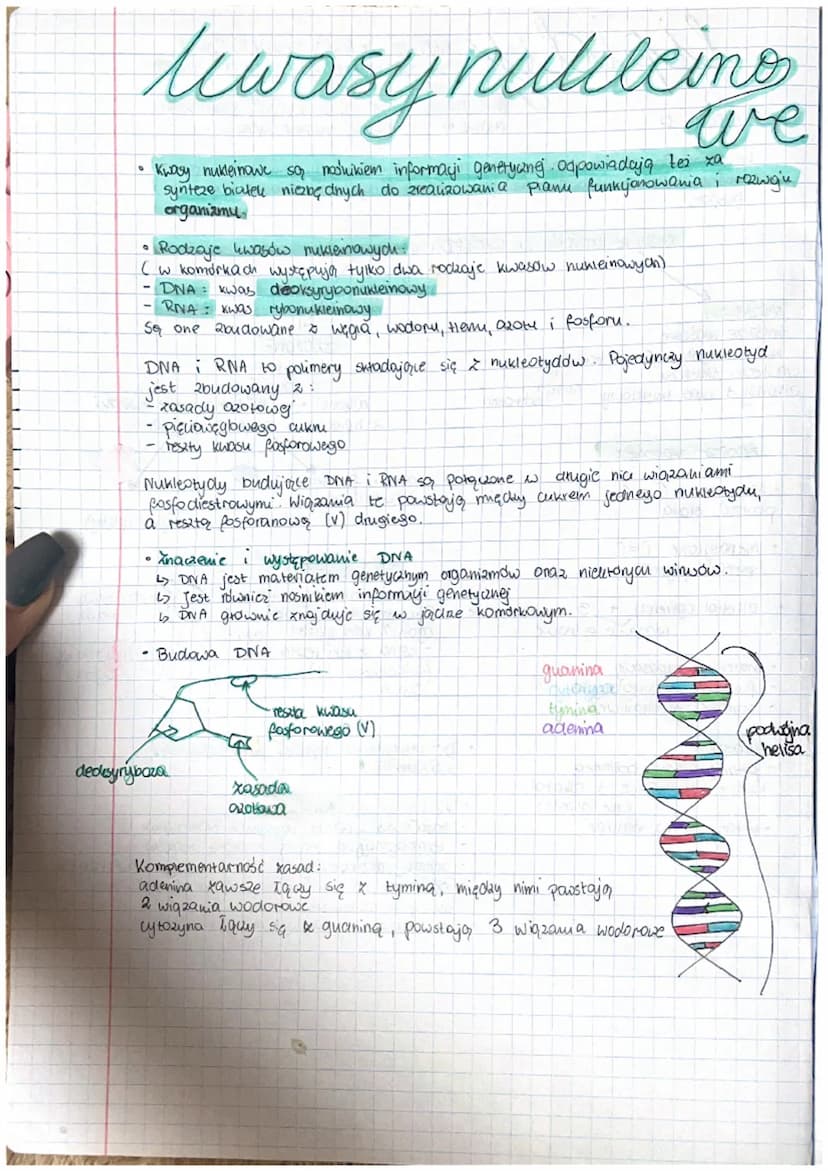 kwasy nukleino
we
• Kwasy nukleinowe są nośnikiem informacji genetycznej. Odpowiadają też za
syntezę białek niezbędnych do zrealizowania planu funkcjonowania i rozwoju
organizmu.
• Rodzaje kwasów nukleinowych:
( w komórkach występują tylko dwa rodzaje kwasów nukleinowych)
- DNA : kwas deoksyrybonukleinowy
- RNA : kwas rybonukleinowy
Są one zbudowane z węgla, wodoru, tlenu, azotu i fosforu.
DNA i RNA to polimery składające się z nukleotydów. Pojedynczy nukleotyd
jest zbudowany z :
- zasady azotowej
- pięciowęglowego cukru
- reszty kwasu fosforowego
Nukleotydy budujące DNA i RNA są połączone w długie nici wiązaniami
fosfodiestrowymi. Wiązania te powstają między cukrem jednego nukleotydu,
a resztą fosforanową (V) drugiego.
• Znaczenie i występowanie DNA
↳ DNA jest materiałem genetycznym organizmów oraz niektórych wirusów.
↳ Jest również nośnikiem informacji genetycznej
↳ DNA głównie znajduje się w jądrze komórkowym.
• Budowa DNA
guanina
cytozyna
tymina
adenina
reszta kwasu
fosforowego (V)
podwójna
helisa
deoksyryboza
zasada
azotowa
Komplementarność zasad:
adenina zawsze łączy się z tyminą, między nimi powstają
2 wiązania wodorowe
cytozyna łączy się z guaniną, powstają 3 wiązania wodorowe